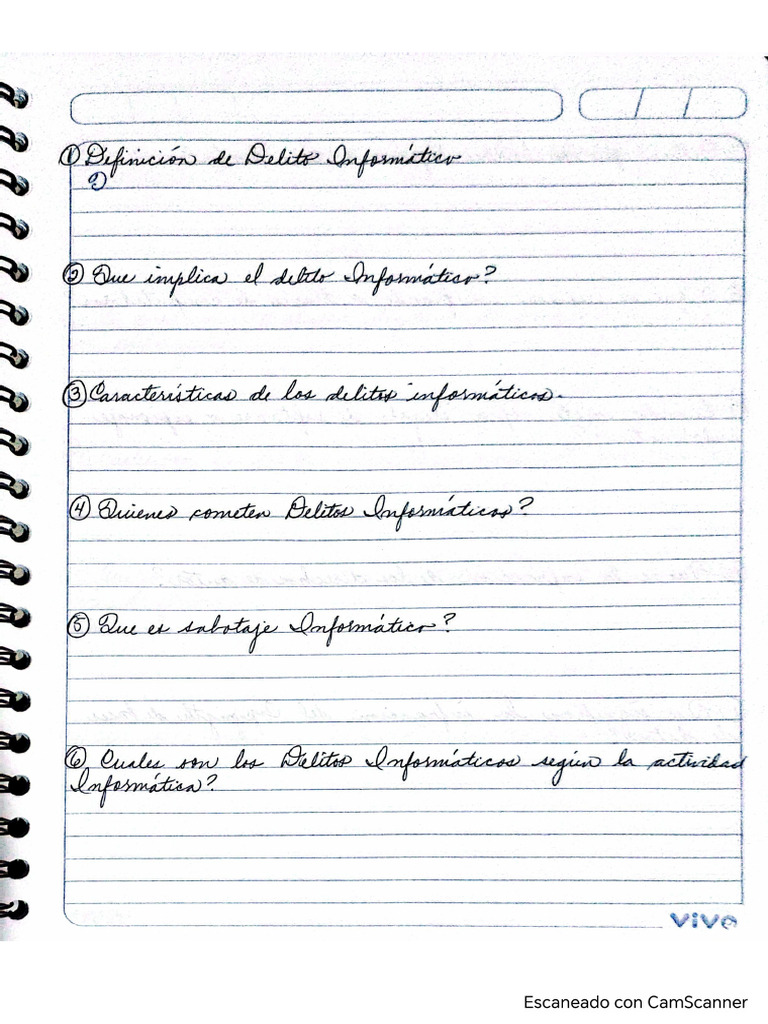 ① Definición de Delito Informático
② Que implica el delito Informático?
③ Características de los delitos informáticos.
④ Quienes cometen Delitos Informáticos?
⑤ Que es sabotaje Informático?
⑥ Cuales son los Delitos Informáticos según la actividad
Informática?
vivo
Escaneado con CamScanner